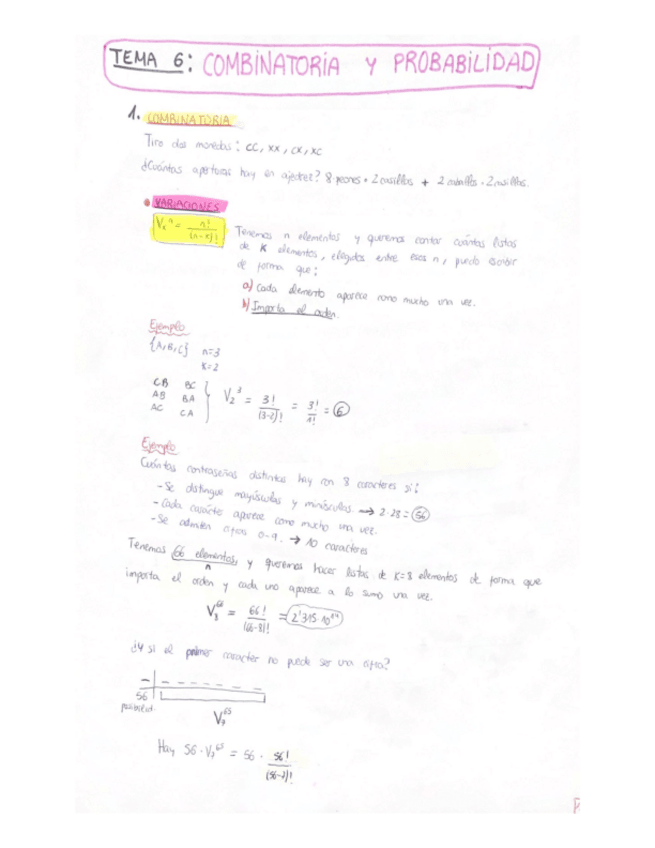 TEMA 6: COMBINATORIA Y PROBABILIDAD
1. COMBINATORIA
Tiro dos monedas: CC, XX, CX, XC
¿Cuántas aperturas hay en ajedrez? 8 peones · 2 casillas + 2 caballos · 2 casillas.
• VARIACIONES
V_k^n = n! / (n-k)!
Tenemos n elementos y queremos contar cuántas listas
de K elementos, elegidos entre esos n, puedo escribir
de forma que:
a) Cada elemento aparece como mucho una vez.
b) Importa el orden.
Ejemplo
{A, B, C} n=3
K=2
CB BC
AB BA
AC CA
V_2^3 = 3! / (3-2)! = 3! / 1! = 6
Ejemplo
Cuántas contraseñas distintas hay con 8 caracteres si:
- Se distingue mayúsculas y minúsculas. → 2·28 = 56
- Cada carácter aparece como mucho una vez.
- Se admiten cifras 0-9. → 10 caracteres
Tenemos 66 elementos, y queremos hacer listas de K=8 elementos de forma que
n
importa el orden y cada uno aparece a lo sumo una vez.
V_8^66 = 66! / (66-8)! = 2'315·10^14
¿Y si el primer carácter no puede ser una cifra?
56
posibilid.
V_7^65
Hay 56 · V_7^65 = 56 · 56! / (56-7)!